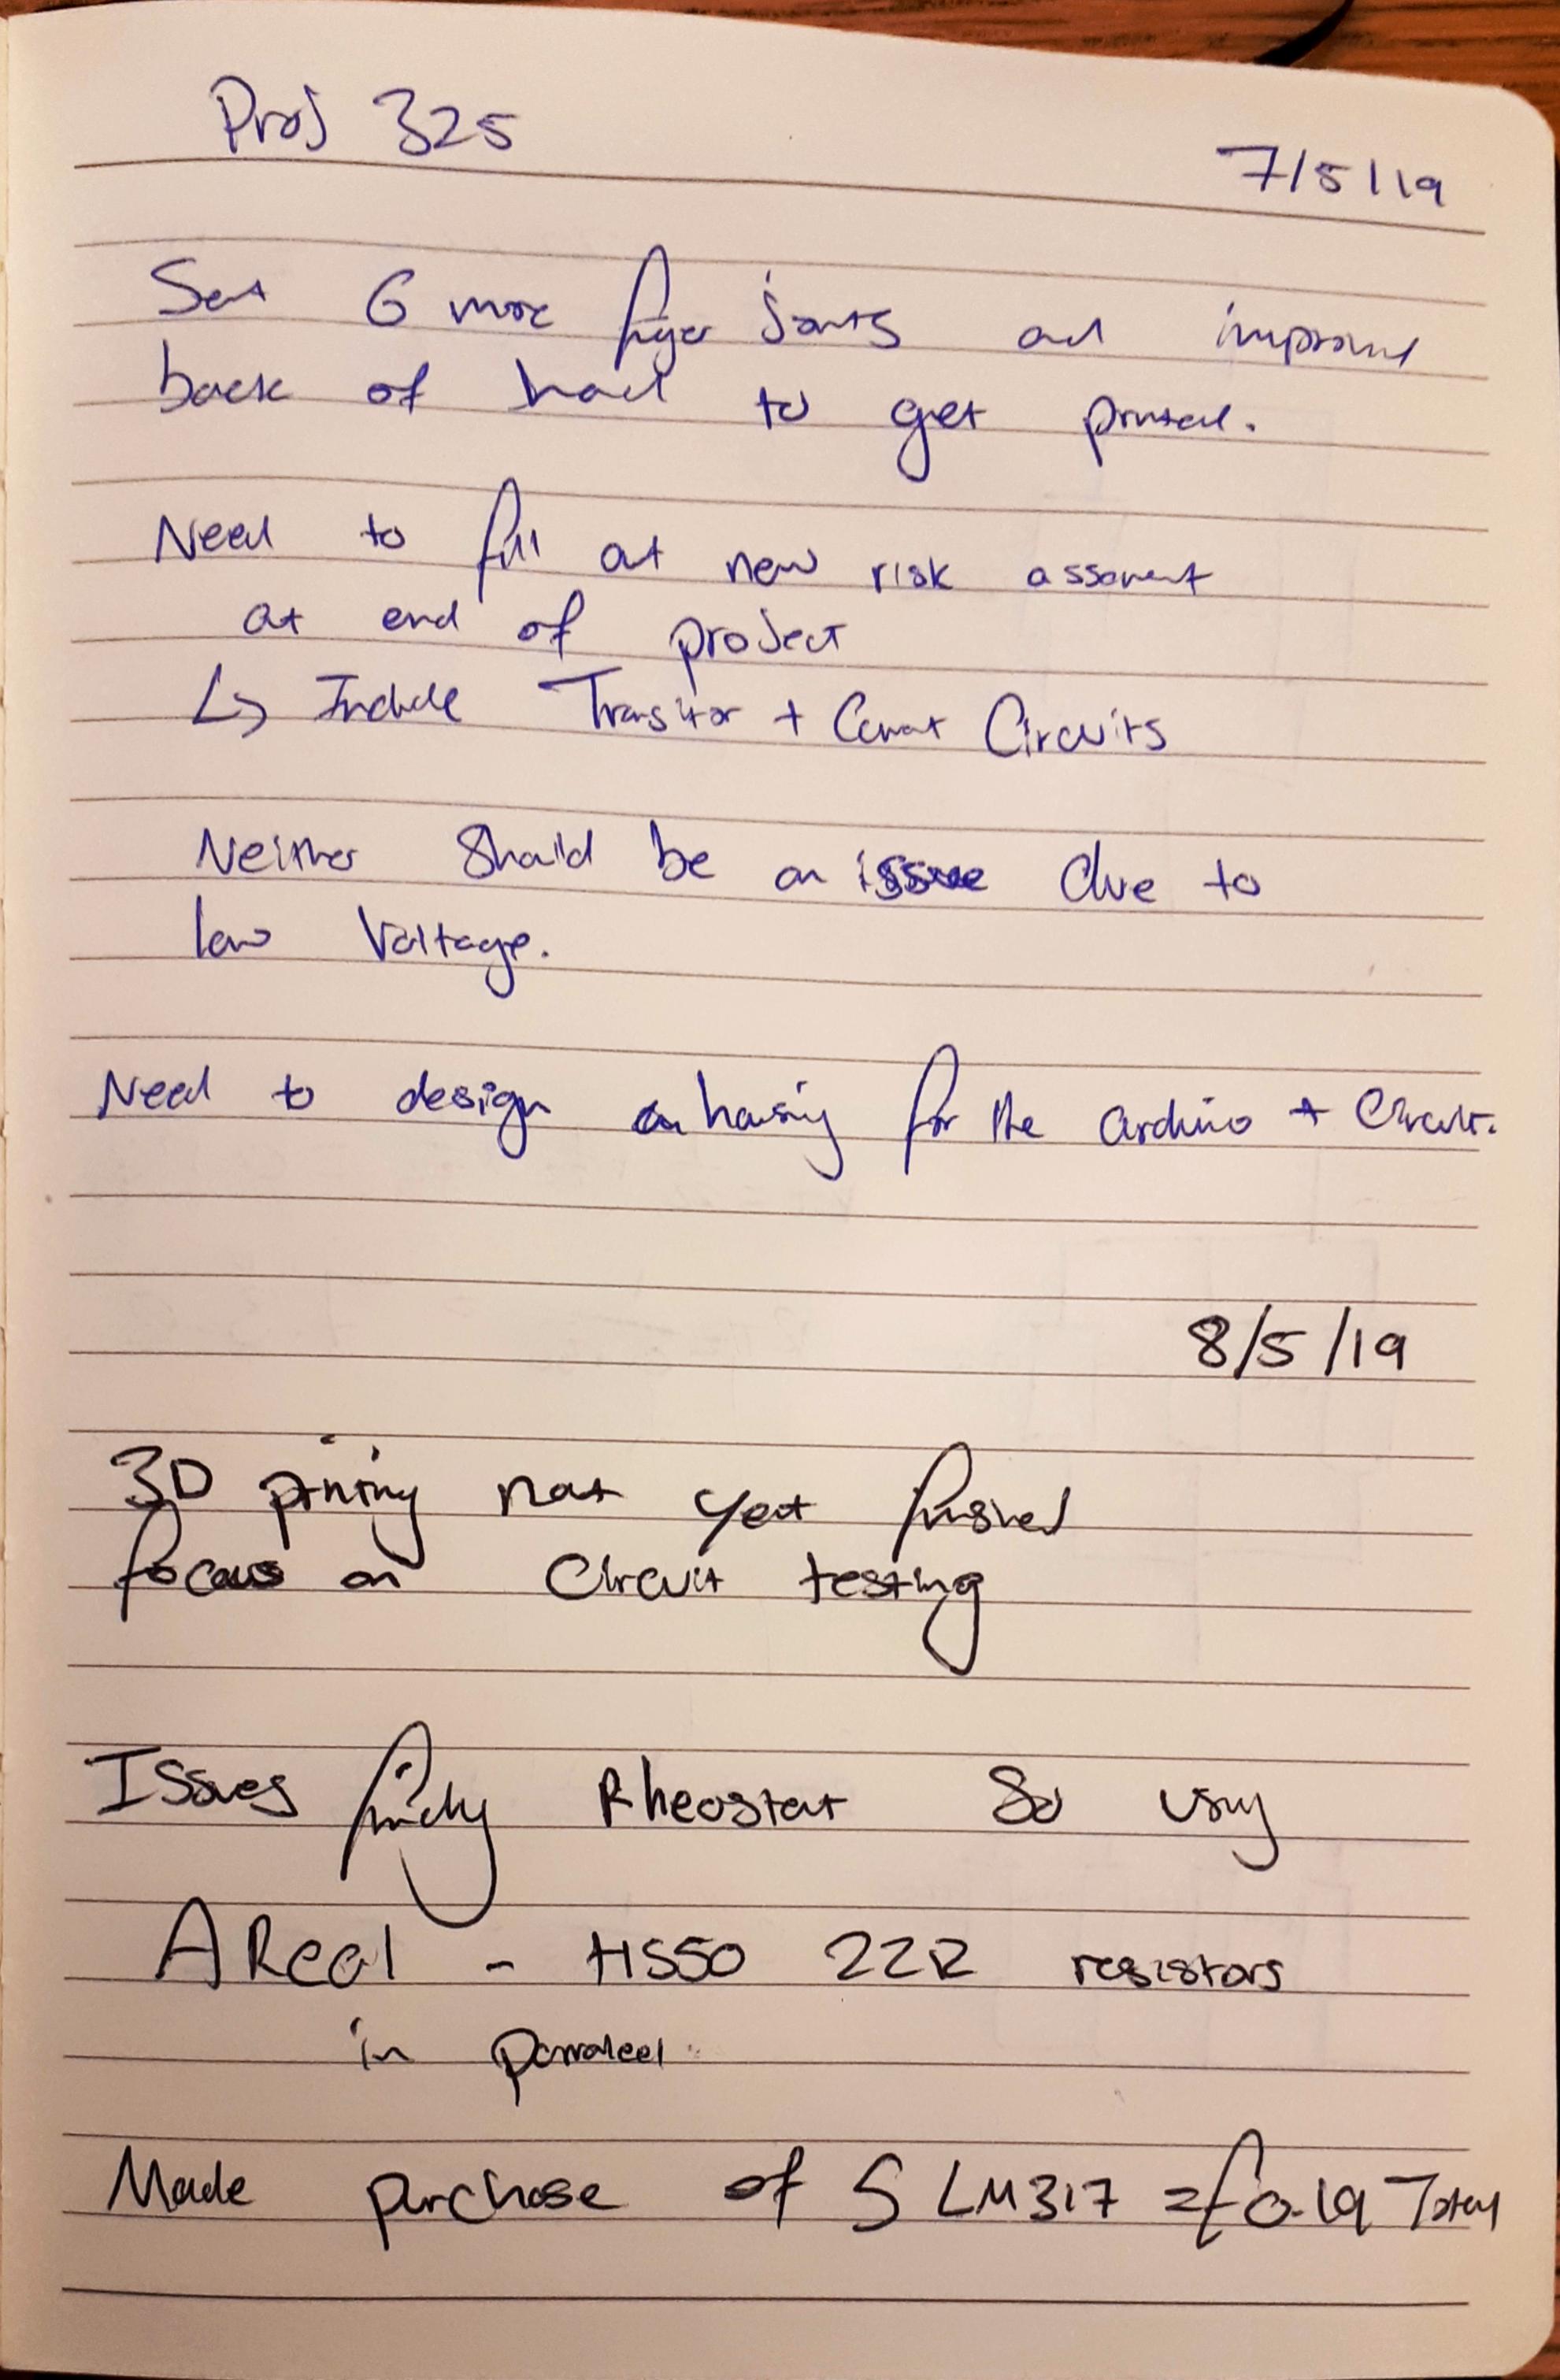 Proj 325
7/5/19
Sent 6 more finger joints and improved
back of hand to get printed.
Need to fill out new risk assesment
at end of project
↳ Include Transitor + Current Circuits
Neither should be an issue due to
low voltage.
Need to design an housing for the arduino + Circuit.
8/5/19
3D printing not yet finished
focus on Circuit testing
Issues finding Rheostat so using
ARCOL - HS50 22R resistors
in parralel
Made purchase of 5 LM317 = £0.19 Total